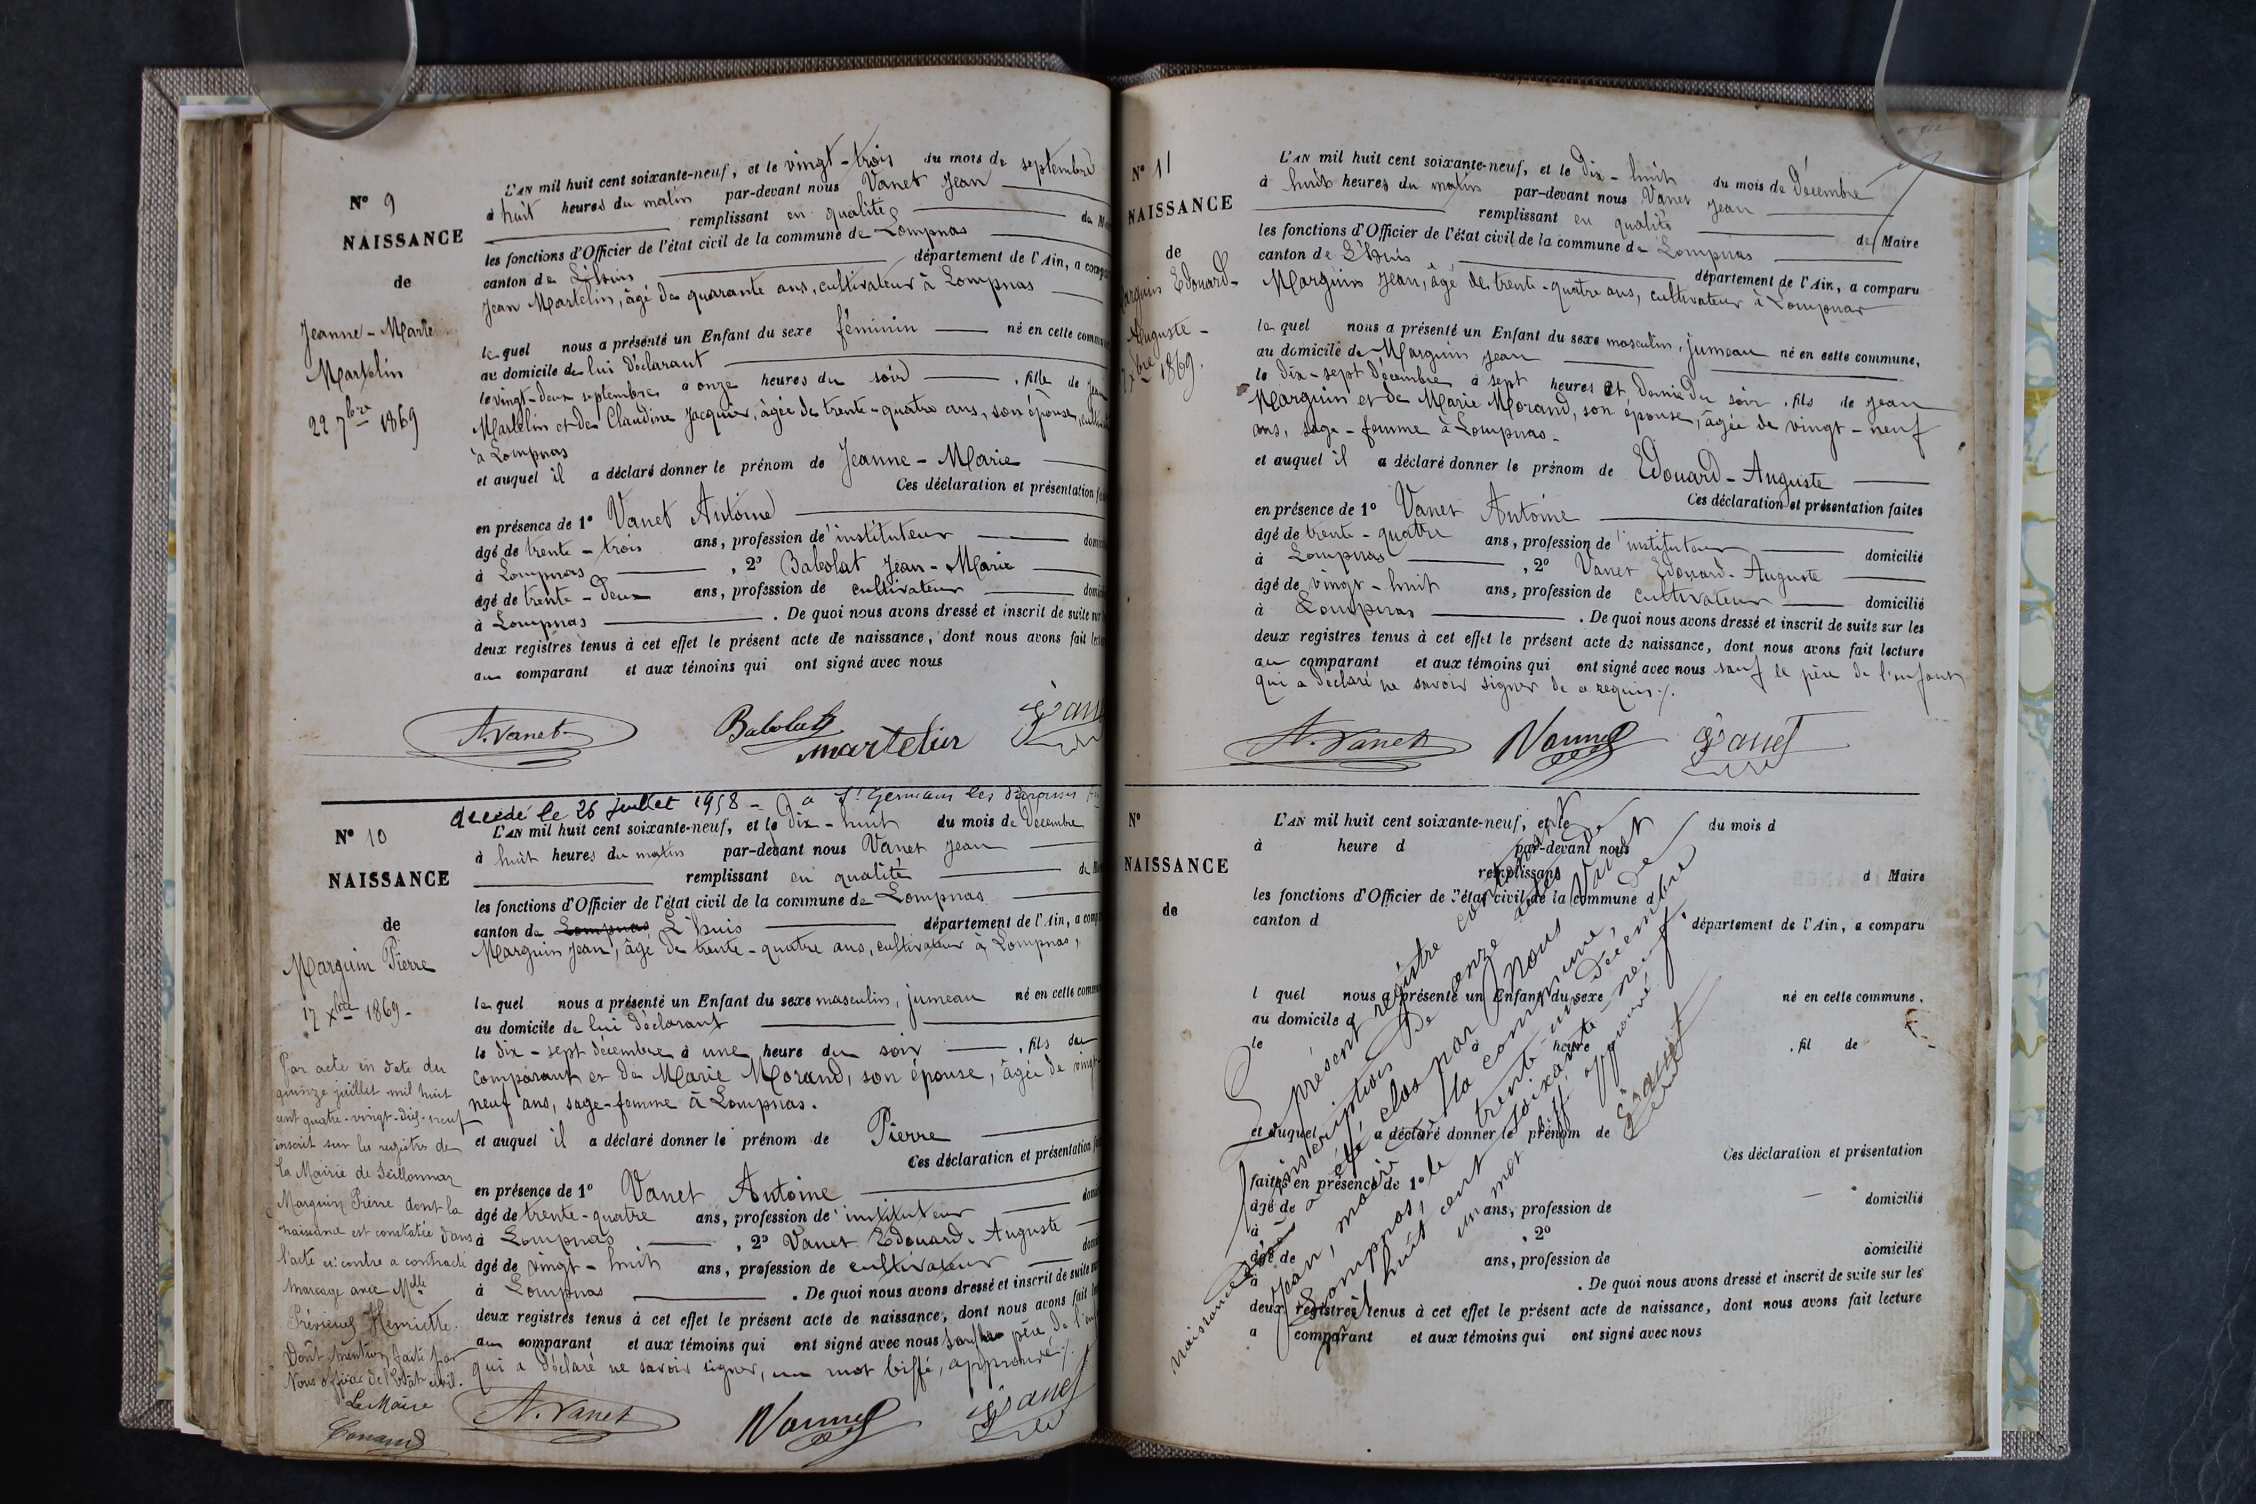 N° 9
NAISSANCE
de
Jeanne-Marie
Martelin
22 7bre 1869
L'AN mil huit cent soixante-neuf, et le vingt-trois du mois de septembre
à huit heures du matin par-devant nous Vanet Jean
remplissant en qualité de
les fonctions d'Officier de l'état civil de la commune de Lompnas
canton de L'huis département de l'Ain, a
Jean Martelin, âgé de quarante ans, cultivateur à Lompnas
lequel nous a présenté un Enfant du sexe féminin né en cette
au domicile de lui déclarant
le vingt-deux septembre à onze heures du soir, fille de Jean
Martelin et de Claudine Jacquier, âgée de trente-quatre ans, son épouse,
à Lompnas
et auquel il a déclaré donner le prénom de Jeanne-Marie
Ces déclaration et présentation
en présence de 1° Vanet Antoine
âgé de trente-trois ans, profession d'instituteur
à Lompnas, 2° Babolat Jean-Marie
âgé de trente-deux ans, profession de cultivateur
à Lompnas. De quoi nous avons dressé et inscrit de suite
deux registres tenus à cet effet le présent acte de naissance, dont nous avons fait
au comparant et aux témoins qui ont signé avec nous
A. Vanet Babolat
martelin
décédé le 26 juillet 1958 - à St Germain les
N° 10
NAISSANCE
de
Marguin Pierre
17 xbre 1869.
L'AN mil huit cent soixante-neuf, et le dix-huit du mois de Décembre
à huit heures du matin par-devant nous Vanet Jean
remplissant en qualité de
les fonctions d'Officier de l'état civil de la commune de Lompnas
canton de Lompnas L'huis département de l'Ain, a
Marguin Jean, âgé de trente-quatre ans, cultivateur à Lompnas,
lequel nous a présenté un Enfant du sexe masculin, jumeau né en cette
au domicile de lui déclarant
le dix-sept décembre à une heure du soir, fils du
comparant et de Marie Morand, son épouse, âgée de vingt-
neuf ans, sage-femme à Lompnas.
et auquel il a déclaré donner le prénom de Pierre
Ces déclaration et présentation
en présence de 1° Vanet Antoine
âgé de trente-quatre ans, profession d'instituteur
à Lompnas, 2° Vanet Edouard-Auguste
âgé de vingt-huit ans, profession de cultivateur
à Lompnas. De quoi nous avons dressé et inscrit de suite
deux registres tenus à cet effet le présent acte de naissance, dont nous avons fait
au comparant et aux témoins qui ont signé avec nous sauf le père de
qui a déclaré ne savoir signer, un mot biffé, approuvé ./.
A. Vanet
Par acte en date du
quinze juillet mil huit
cent quatre-vingt-dix-neuf
inscrit sur les registres de
la Mairie de Seillonnaz
Marguin Pierre dont la
naissance est constatée dans
l'acte ci-contre a contracté
mariage avec Melle
Henriette.
Dont mention faite par
Nous officier de l'Etat civil.
Le Maire
N° 11
NAISSANCE
de
Marguin Edouard-
Auguste -
17 xbre 1869.
L'AN mil huit cent soixante-neuf, et le dix-huit du mois de Décembre
à huit heures du matin par-devant nous Vanet Jean
remplissant en qualité de Maire
les fonctions d'Officier de l'état civil de la commune de Lompnas
canton de L'huis département de l'Ain, a comparu
Marguin Jean, âgé de trente-quatre ans, cultivateur à Lompnas
lequel nous a présenté un Enfant du sexe masculin, jumeau né en cette commune,
au domicile de Marguin Jean
le dix-sept décembre à sept heures et demie du soir, fils de Jean
Marguin et de Marie Morand, son épouse, âgée de vingt-neuf
ans, sage-femme à Lompnas-
et auquel il a déclaré donner le prénom de Edouard-Auguste
Ces déclaration et présentation faites
en présence de 1° Vanet Antoine
âgé de trente-quatre ans, profession d'instituteur domicilié
à Lompnas, 2° Vanet Edouard-Auguste
âgé de vingt-huit ans, profession de cultivateur domicilié
à Lompnas. De quoi nous avons dressé et inscrit de suite sur les
deux registres tenus à cet effet le présent acte de naissance, dont nous avons fait lecture
au comparant et aux témoins qui ont signé avec nous sauf le père de l'enfant
qui a déclaré ne savoir signer de ce requis ./.
A. Vanet
N°
NAISSANCE
de
L'AN mil huit cent soixante-neuf, et le du mois d
à heure d par-devant nous
remplissant d Maire
les fonctions d'Officier de l'état civil de la commune d
canton d département de l'Ain, a comparu
l quel nous a présenté un Enfant du sexe né en cette commune,
au domicile d
le à heure , fil de
et auquel a déclaré donner le prénom de
Ces déclaration et présentation
faites en présence de 1°
âgé de ans, profession de domicilié
à , 2°
âgé de ans, profession de domicilié
à . De quoi nous avons dressé et inscrit de suite sur les
deux registres tenus à cet effet le présent acte de naissance, dont nous avons fait lecture
a comparant et aux témoins qui ont signé avec nous
Le présent registre contenant
inscriptions de onze actes de
naissances a été clos par nous Vanet
Jean, maire de la commune de
Lompnas, le trente-un Décembre
mil huit cent soixante-neuf.
un mot biffé approuvé